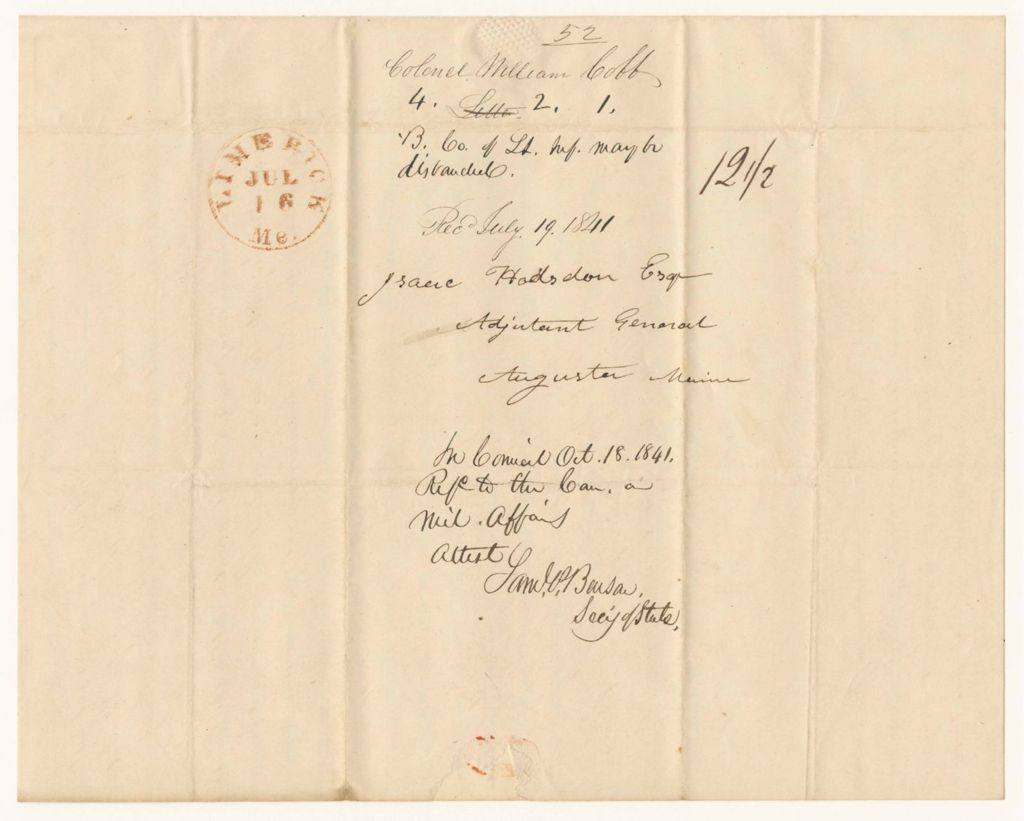 52
Colonel William Cobb
4. Letter. 2. 1.
B. Co. of Lt. Inf. may be
disbanded.
LIMERICK
JUL
16
Me.
12 1/2
Recd July. 19. 1841
Isaac Hodsdon Esqr
Adjutant General
Augusta Maine
In Council Oct. 18. 1841.
Refd to the Com. on
Mil. Affairs
Attest
Saml. P. Benson,
Secy of State,